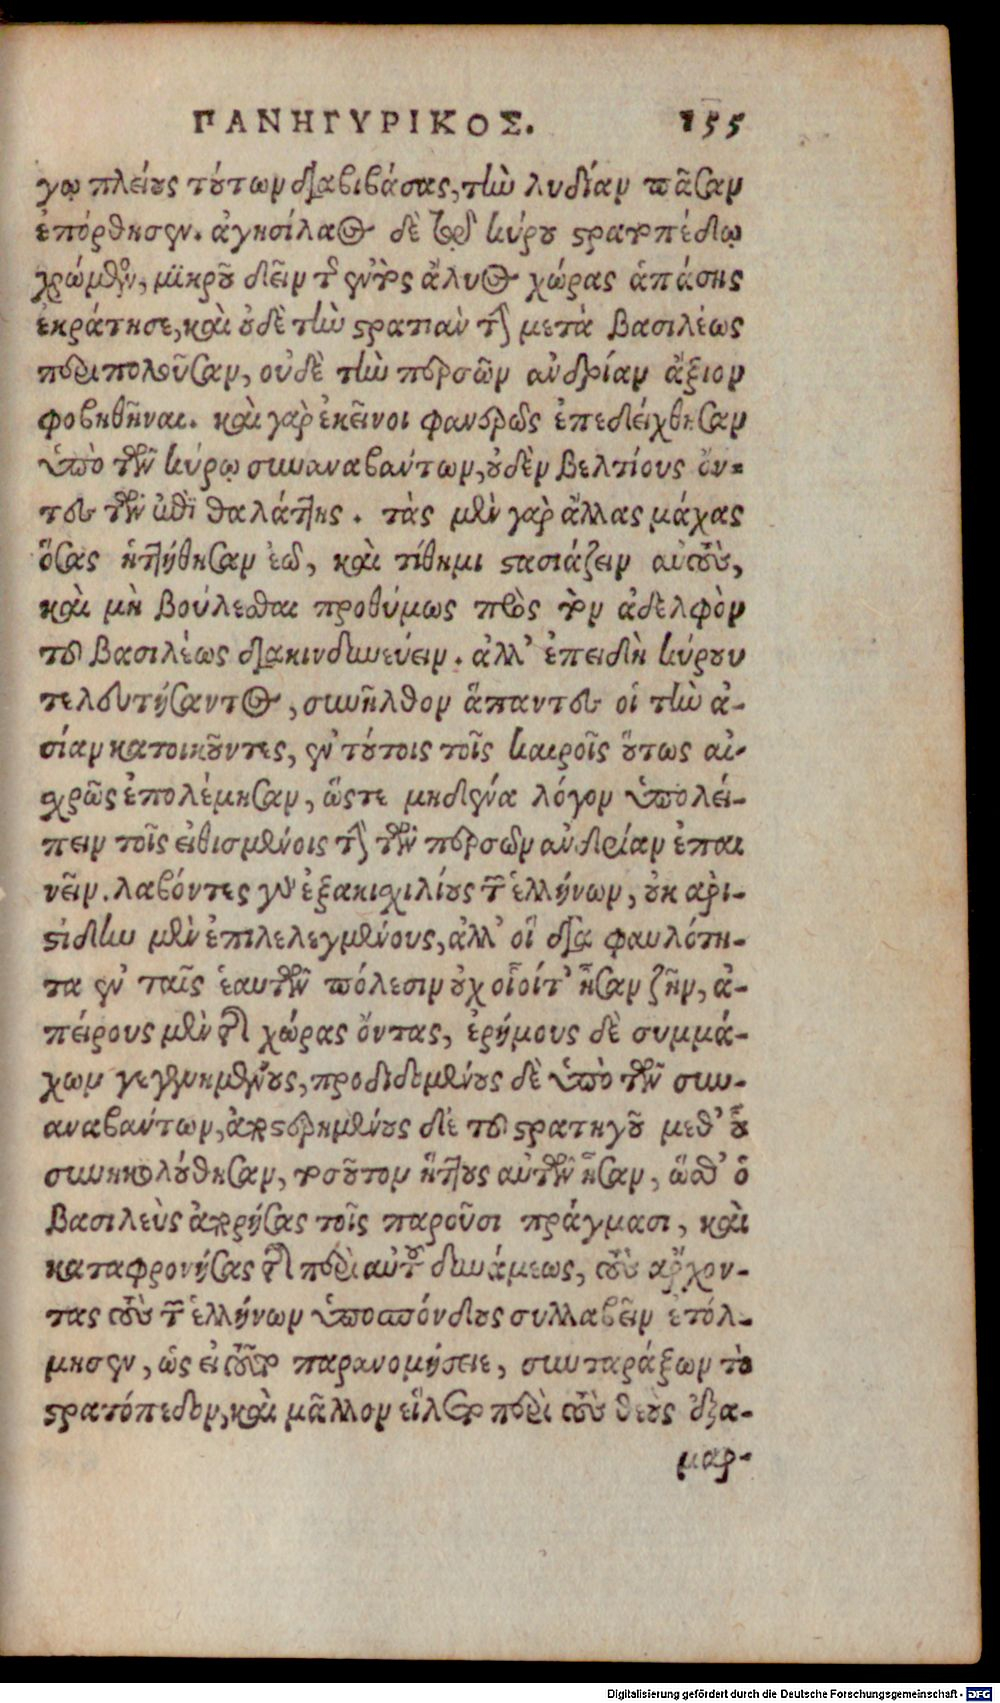 ΠΑΝΗΓΥΡΙΚΟΣ. 155
γῳ πλείους τούτων διαβιβάσας, τὴν λυδίαν πᾶσαν
ἐπόρθησεν. ἀγησίλαος δὲ τῷ κύρου στρατοπέδῳ
χρώμενος, μικροῦ δεῖν τῆς ἐντὸς ἅλυος χώρας ἁπάσης
ἐκράτησε, καὶ οὐδὲ τὴν στρατιὰν τὴν μετὰ βασιλέως
περιπολοῦσαν, οὐδὲ τὴν περσῶν ἀνδρίαν ἄξιον
φοβηθῆναι. καὶ γὰρ ἐκεῖνοι φανερῶς ἐπεδείχθησαν
ὑπὸ τῶν κύρῳ συναναβάντων, οὐδὲν βελτίους ὄν-
τες τῶν ἐπὶ θαλάττης. τὰς μὲν γὰρ ἄλλας μάχας
ὅσας ἡττήθησαν ἐῶ, καὶ τίθημι στασιάζειν αὐτοὺς,
καὶ μὴ βούλεσθαι προθύμως πρὸς τὸν ἀδελφὸν
τοῦ βασιλέως διακινδυνεύειν. ἀλλ' ἐπειδὴ κύρου
τελευτήσαντος, συνῆλθον ἅπαντες οἱ τὴν ἀ-
σίαν κατοικοῦντες, ἐν τούτοις τοῖς καιροῖς οὕτως αἰ-
σχρῶς ἐπολέμησαν, ὥστε μηδένα λόγον ὑπολεί-
πειν τοῖς εἰθισμένοις τὴν τῶν περσῶν ἀνδρίαν ἐπαι
νεῖν. λαβόντες γὰρ ἑξακισχιλίους τῶν ἑλλήνων, οὐκ ἀρι-
στίδην μὲν ἐπιλελεγμένους, ἀλλ' οἳ διὰ φαυλότη-
τα ἐν ταῖς ἑαυτῶν πόλεσιν οὐχ οἷοίτ' ἦσαν ζῆν, ἀ-
πείρους μὲν τῆς χώρας ὄντας, ἐρήμους δὲ συμμά-
χων γεγενημένους, προδεδομένους δὲ ὑπὸ τῶν συν-
αναβάντων, ἀπεστερημένους δὲ τοῦ στρατηγοῦ μεθ' οὗ
συνηκολούθησαν, τοσοῦτον ἥττους αὐτῶν ἦσαν, ὥσθ' ὁ
βασιλεὺς ἀπορήσας τοῖς παροῦσι πράγμασι, καὶ
καταφρονήσας τῆς περὶ αὐτὸν δυνάμεως, τοὺς ἄρχον-
τας τοὺς τῶν ἑλλήνων ὑποσπόνδους συλλαβεῖν ἐτόλ-
μησεν, ὡς εἰ τοῦτο παρανομήσειε, συνταράξων τὸ
στρατόπεδον, καὶ μᾶλλον εἵλετο περὶ τοὺς θεοὺς ἐξα-
μαρ-
Digitalisierung gefördert durch die Deutsche Forschungsgemeinschaft - DFG